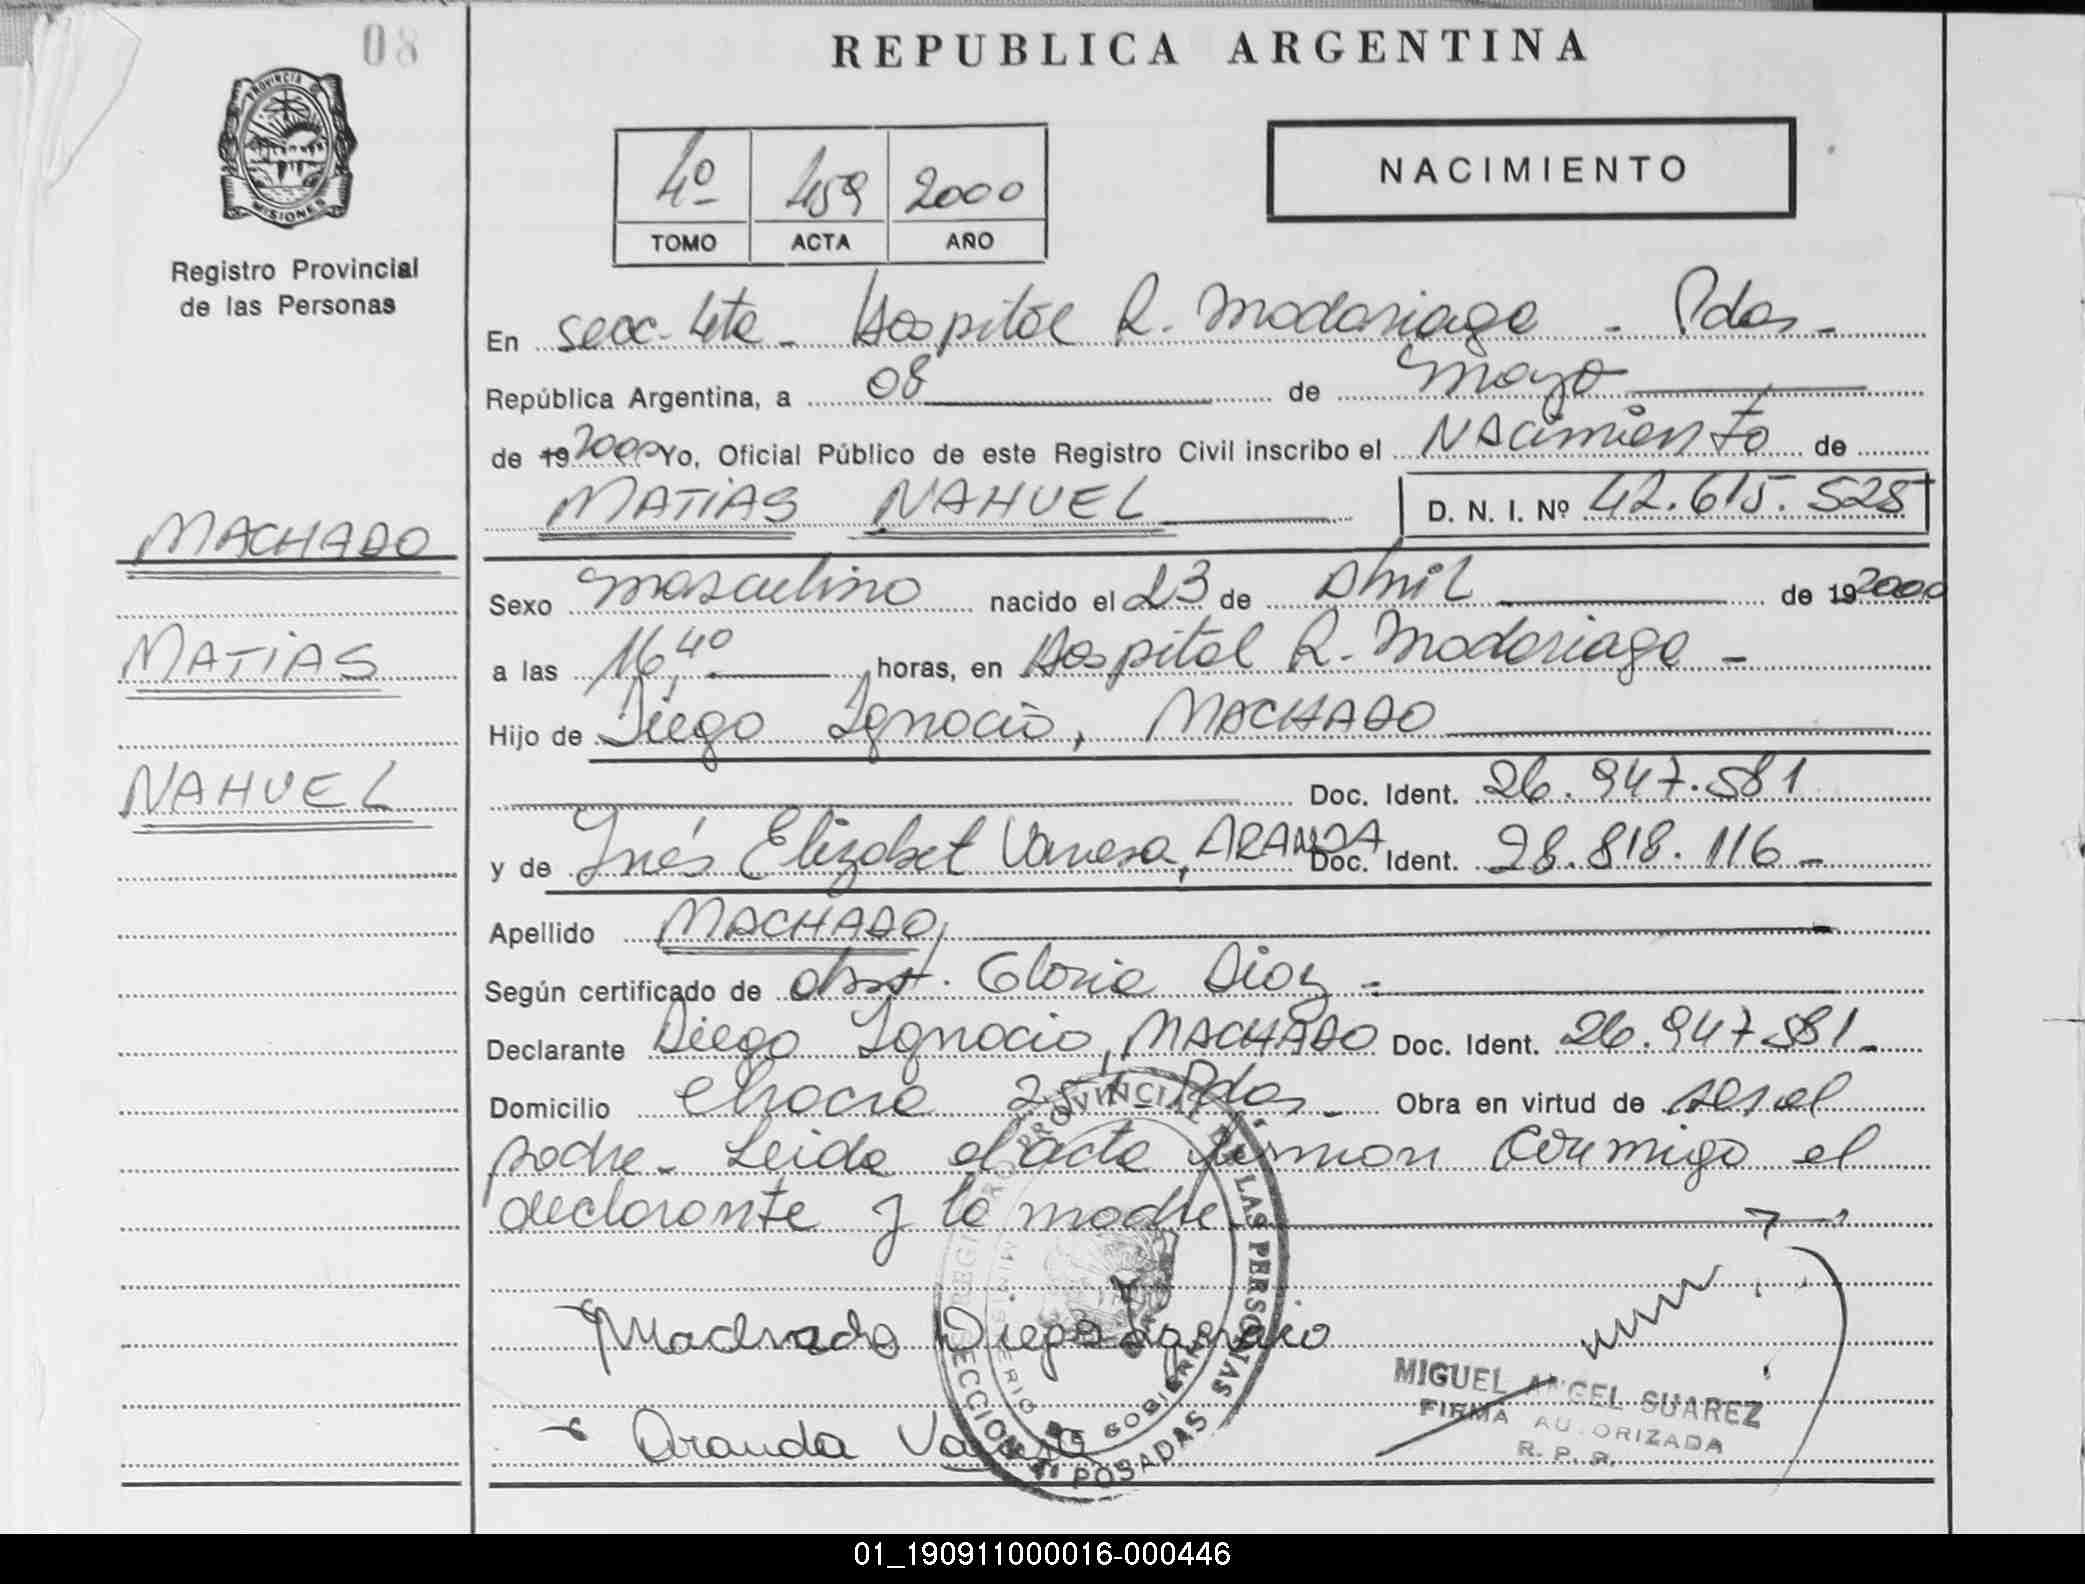 08
REPUBLICA ARGENTINA
PROVINCIA DE
MISIONES
Registro Provincial
de las Personas
4º 459 2000
TOMO ACTA AÑO
NACIMIENTO
En secc. 4ta - Hospital R. Madariaga - Pdas -
República Argentina, a 08 de mayo
de 19 2000 Yo, Oficial Público de este Registro Civil inscribo el NAcimiento de
MATIAS NAHUEL D. N. I. Nº 42.615.525
MACHADO
MATIAS
NAHUEL
Sexo masculino nacido el 23 de Abril de 19 2000
a las 16,40 horas, en Hospital R. Madariaga -
Hijo de Diego Ignacio, MACHADO
Doc. Ident. 26.947.581
y de Inés Elizabet Vanesa, ARANDA Doc. Ident. 28.818.116 -
Apellido MACHADO,
Según certificado de obst. Gloria Diaz -
Declarante Diego Ignacio, MACHADO Doc. Ident. 26.947.581 -
Domicilio chacra Pdas - Obra en virtud de ser el
padre - Leida el acta firman conmigo el
declarante y la madre
Machado Diego Ignacio
Aranda Vanesa
REGISTRO PROVINCIAL DE LAS PERSONAS
MINISTERIO DE GOBIERNO
POSADAS
MIGUEL ANGEL SUAREZ
FIRMA AUTORIZADA
R. P. P.
01_190911000016-000446